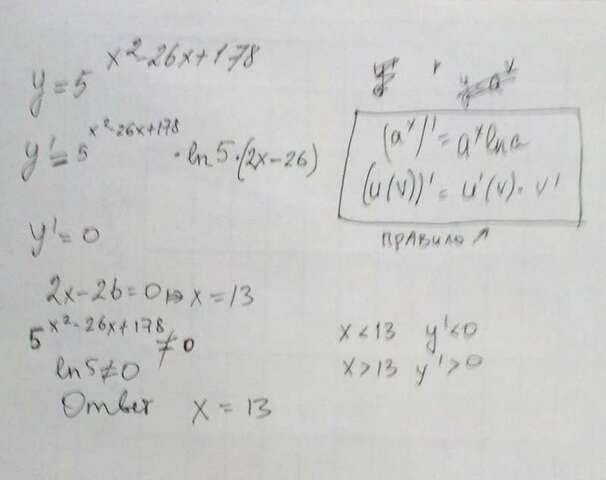 y = 5^{x²-26x+178}
y' = 5^{x²-26x+178} · ln5·(2x-26)
y' = 0
2x-26=0 ⇒ x=13
5^{x²-26x+178} ≠ 0
ln5≠0
Ответ x = 13
(a^x)' = a^x ln a
(u(v))' = u'(v)· v'
ПРАВИЛО ↗
x<13 y'<0
x>13 y'>0